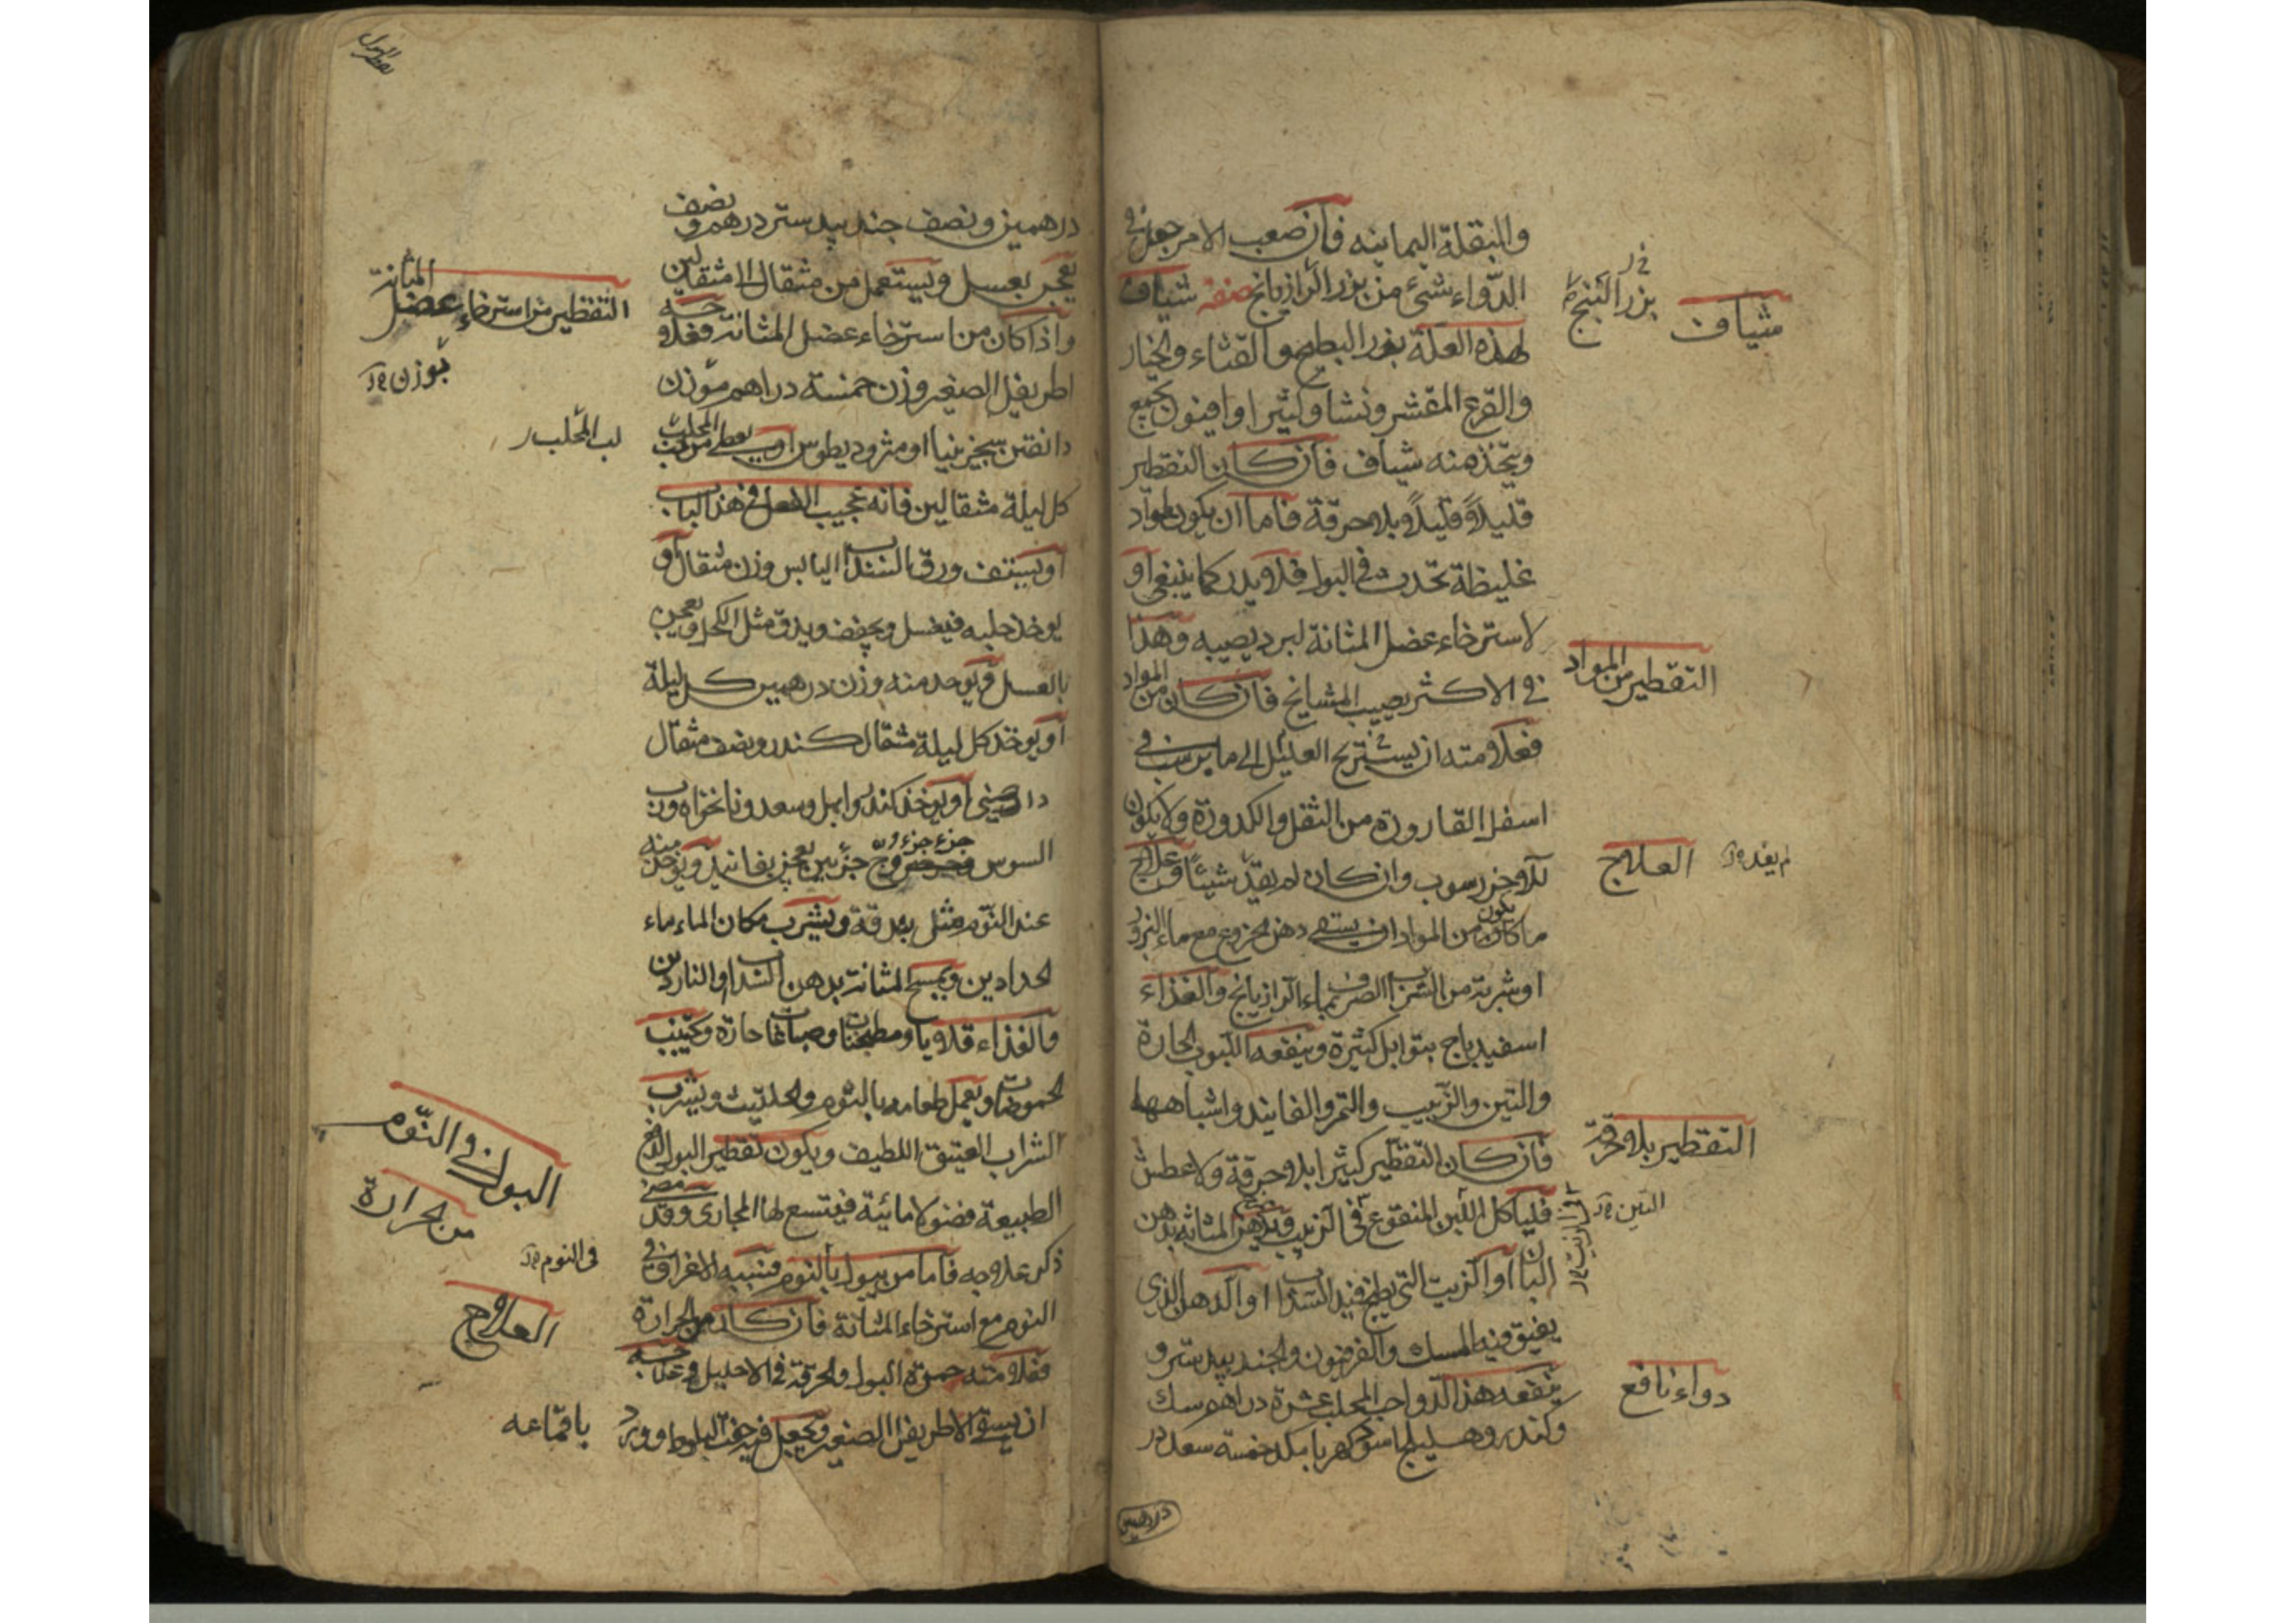 والبقلة اليمانيه فان صعب الامر جعل في
الدواء شئ من بزر الرازيانج صفة شياف
لهذه العلة بزر البطيخ والقثاء والخيار
والقرع المقشر ونشا وكثيرا وافيون يجمع
ويتخذ منه شياف فان كان التقطير
قليلاً قليلاً وبلا حرقة فاما ان يكون لمواد
غليظة تحدث في البول فلا يدر كما ينبغي او
لاسترخاء عضل المثانة لبرد يصيبه وهذا
في الاكثر يصيب المشايخ فان كان من المواد
فعلامته ان يستريح العليل الى ما يرسب في
اسفل القارورة من الثفل والكدورة ولا يكون
للآخر رسوب وان كان لم يفد شيئاً وعلاج
ما كان يكون من المواد ان يسقى دهن الخروع مع ماء البزور
او شربة من الشراب الصرف بماء الرازيانج والغذاء
اسفيدباج بتوابل كثيرة وينفعه اللبوب الحارة
والتين والزبيب والتمر والفانيد واشباهها
فان كان التقطير كثيرا بلا حرقة ولا عطش
فلياكل التين المنقوع في الزيت ويدهن المثانة بدهن
البان او الزيت التي يطبخ فيه السذاب او الدهن الذي
يفتق فيه المسك والفرفيون والجندبيدستر و
ينفعه هذا الدوا حب المحلب عشرة دراهم سك
وكندر وهليلج اسود كهربا مكد خمسة سعد در
درهمين
شياف
بزر البنج
التقطير من المواد
العلاج
لم يفد
التقطير بلا حرقة
التين
دواء نافع
درهمين ونصف جندبيدستر درهم ونصف
يعجن بعسل ويستعمل من مثقال الا مثقالين
واذا كان من استرخاء عضل المثانة فعلاجه
اطريفل الصغير وزن خمسة دراهم بوزن
دانقين سجزينيا او مثروديطوس او يعطى من لب المحلب
كل ليلة مثقالين فانه عجيب الفعل في هذا الباب
او يستف ورق السذاب اليابس وزن مثقال او
يوخذ حلبه فيغسل ويجفف ويدق مثل الكحل ويعجن
بالعسل ويوخد منه وزن درهمين كل ليلة
او يوخذ كل ليلة مثقال كندر ونصف مثقال
دارصيني او يوخذ كندر وابهل وسعد ونانخواه ورب
السوس جزء جزء ووج جزئين يعجن بفانيد ويوخذ منه
عند النوم مثل بندقة ويشرب مكان الماء ماء
الحدادين ويمسح المثانة بدهن السذاب او الناردين
والغذاء قلايا ومطجنات وصباغا حارة ويجتنب
الحموضات ويعمل طعامه بالثوم والحلتيت ويشرب
الشراب العتيق اللطيف ويكون تقطير البول لدفع
الطبيعة فضولا مائية فيتسع لها المجارى وقد مضى
ذكر علاجه فاما من يبول بالنوم فسببه الاغراق في
النوم مع استرخاء المثانة فان كان من الحرارة
فعلامته حمرة البول والحرقة في الاحليل وعلاجه
ان يسقى الاطريفل الصغير ويجعل فيه جفت البلوط وورد
تقطير البول
التقطير من استرخاء عضل المثانة
بوزن
لب المحلب
البول في النوم
من الحرارة
في النوم
العلاج
باقماعه